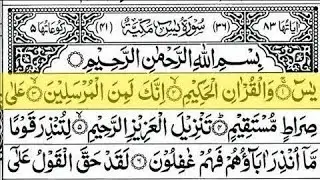 اٰیَاتُهَا ٨٣ (٣٦) سُوْرَةُ یٰسٓ مَكِّیَّةٌ (٤١) رُكُوْعَاتُهَا ٥
بِسْمِ اللّٰهِ الرَّحْمٰنِ الرَّحِیْمِ
یٰسٓ ۚ۝ وَالْقُرْاٰنِ الْحَكِیْمِ ۙ۝ اِنَّكَ لَمِنَ الْمُرْسَلِیْنَ ۙ۝ عَلٰی
صِرَاطٍ مُّسْتَقِیْمٍ ؕ۝ تَنْزِیْلَ الْعَزِیْزِ الرَّحِیْمِ ۙ۝ لِتُنْذِرَ قَوْمًا
مَّاۤ اُنْذِرَ اٰبَآؤُهُمْ فَهُمْ غٰفِلُوْنَ ۝ لَقَدْ حَقَّ الْقَوْلُ عَلٰۤی